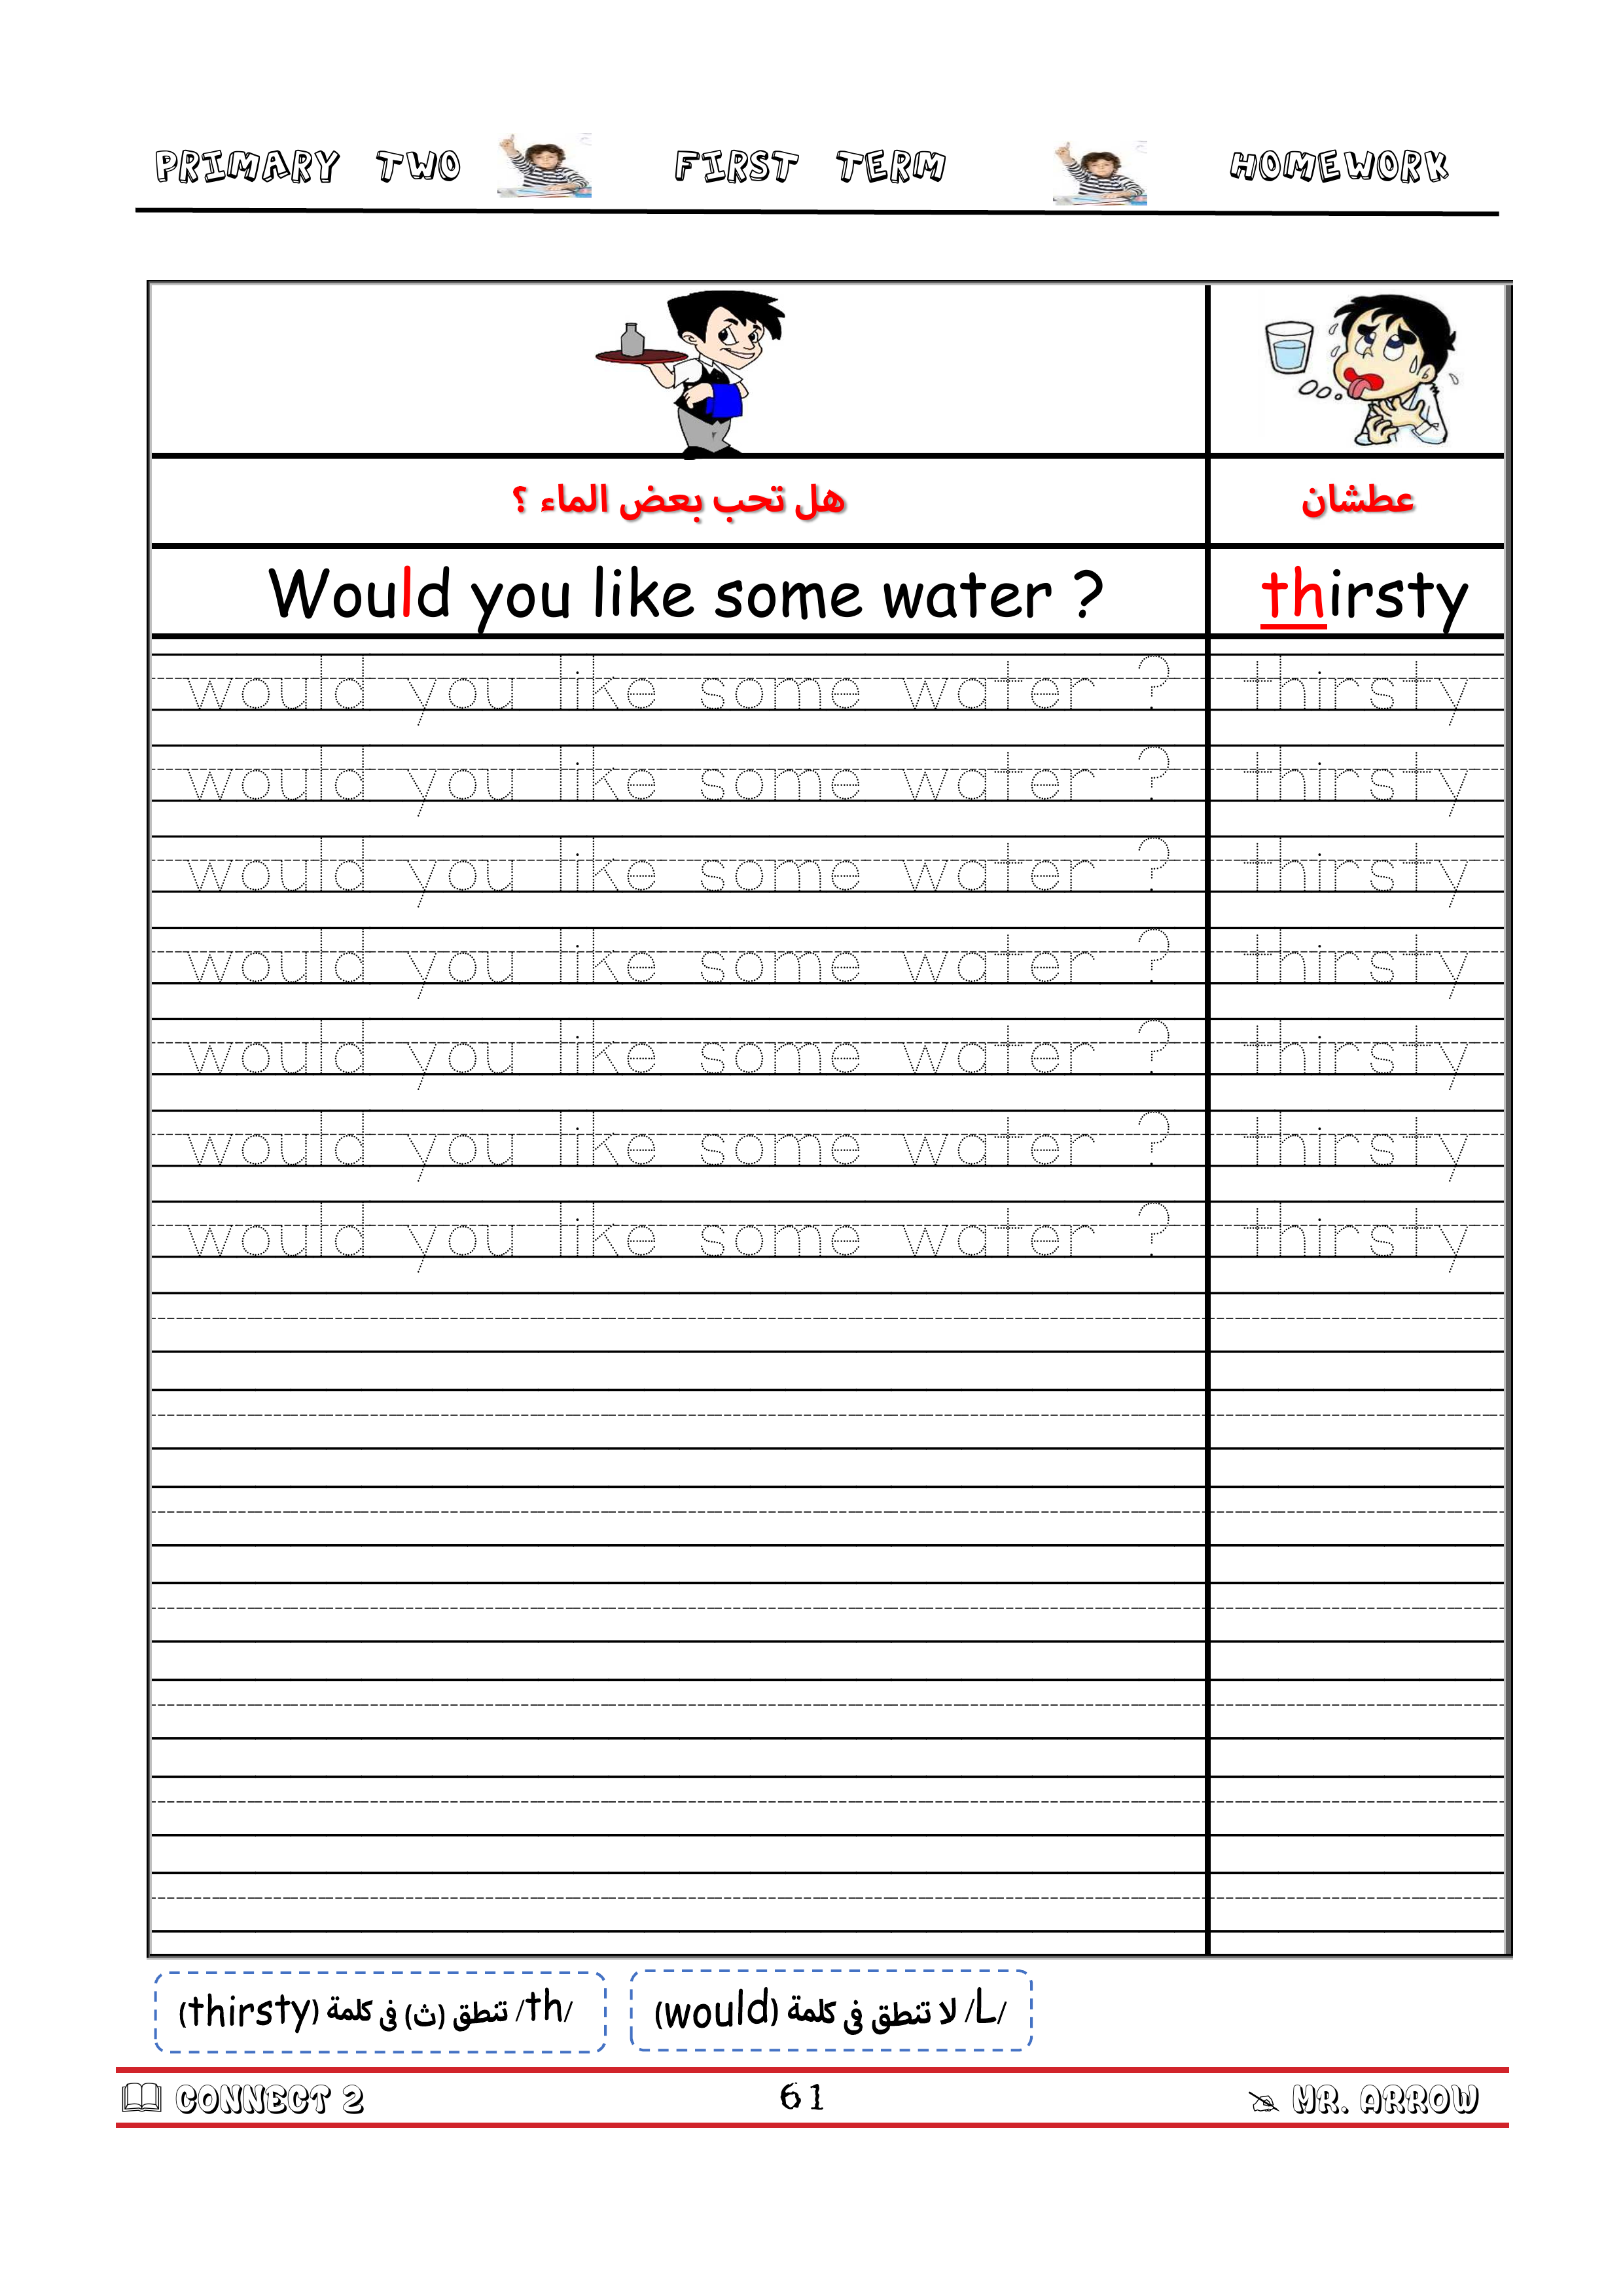 PRIMARY TWO FIRST TERM HOMEWORK
هل تحب بعض الماء ؟ عطشان
Would you like some water ? thirsty
would you like some water ? thirsty
would you like some water ? thirsty
would you like some water ? thirsty
would you like some water ? thirsty
would you like some water ? thirsty
would you like some water ? thirsty
would you like some water ? thirsty
/th/ تنطق (ث) فى كلمة (thirsty)
/L/ لا تنطق فى كلمة (would)
CONNECT 2 61 MR. ARROW